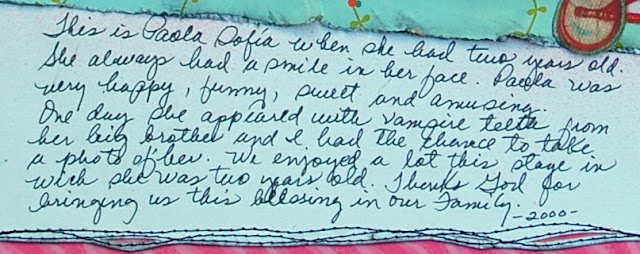 This is Paola Sofía when she had two years old.
She always had a smile in her face. Paola was
very happy, funny, sweet and amusing.
One day she appeared with vampire teeth from
her big brother and I had the chance to take
a photo of her. We enjoyed a lot this stage in
wich she was two years old. Thanks God for
bringing us this blessing in our Family.
-2000-